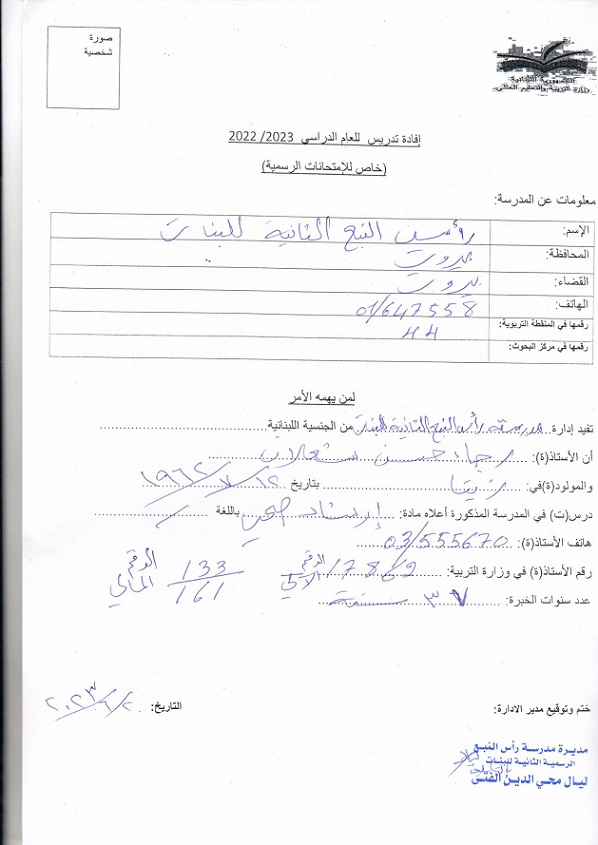 صورة
شخصية
الجمهورية اللبنانية
وزارة التربية والتعليم العالي
إفادة تدريس للعام الدراسي 2023/ 2022
(خاص للإمتحانات الرسمية)
معلومات عن المدرسة:
الإسم: رأس النبع الثانية للبنات
المحافظة: بيروت
القضاء: بيروت
الهاتف: 01/647558
رقمها في المنقطة التربوية: 44
رقمها في مركز البحوث:
لمن يهمه الأمر
تفيد إدارة مدرسة رأس النبع الثانية للبنات من الجنسية اللبنانية
أن الأستاذ(ة): رجاء حسن شعلان
والمولود(ة)في: بتاريخ ١٢/٧/١٩٦٢
درس(ت) في المدرسة المذكورة أعلاه مادة: إرشاد صحي باللغة
هاتف الأستاذ(ة): 03/555670
رقم الأستاذ(ة) في وزارة التربية: الرقم الآلي 133/161 الرقم المالي
عدد سنوات الخبرة: سنة
ختم وتوقيع مدير الادارة: التاريخ:
مديرة مدرسة رأس النبع
الرسمية الثانية للبنات
ليال محي الدين الفتى